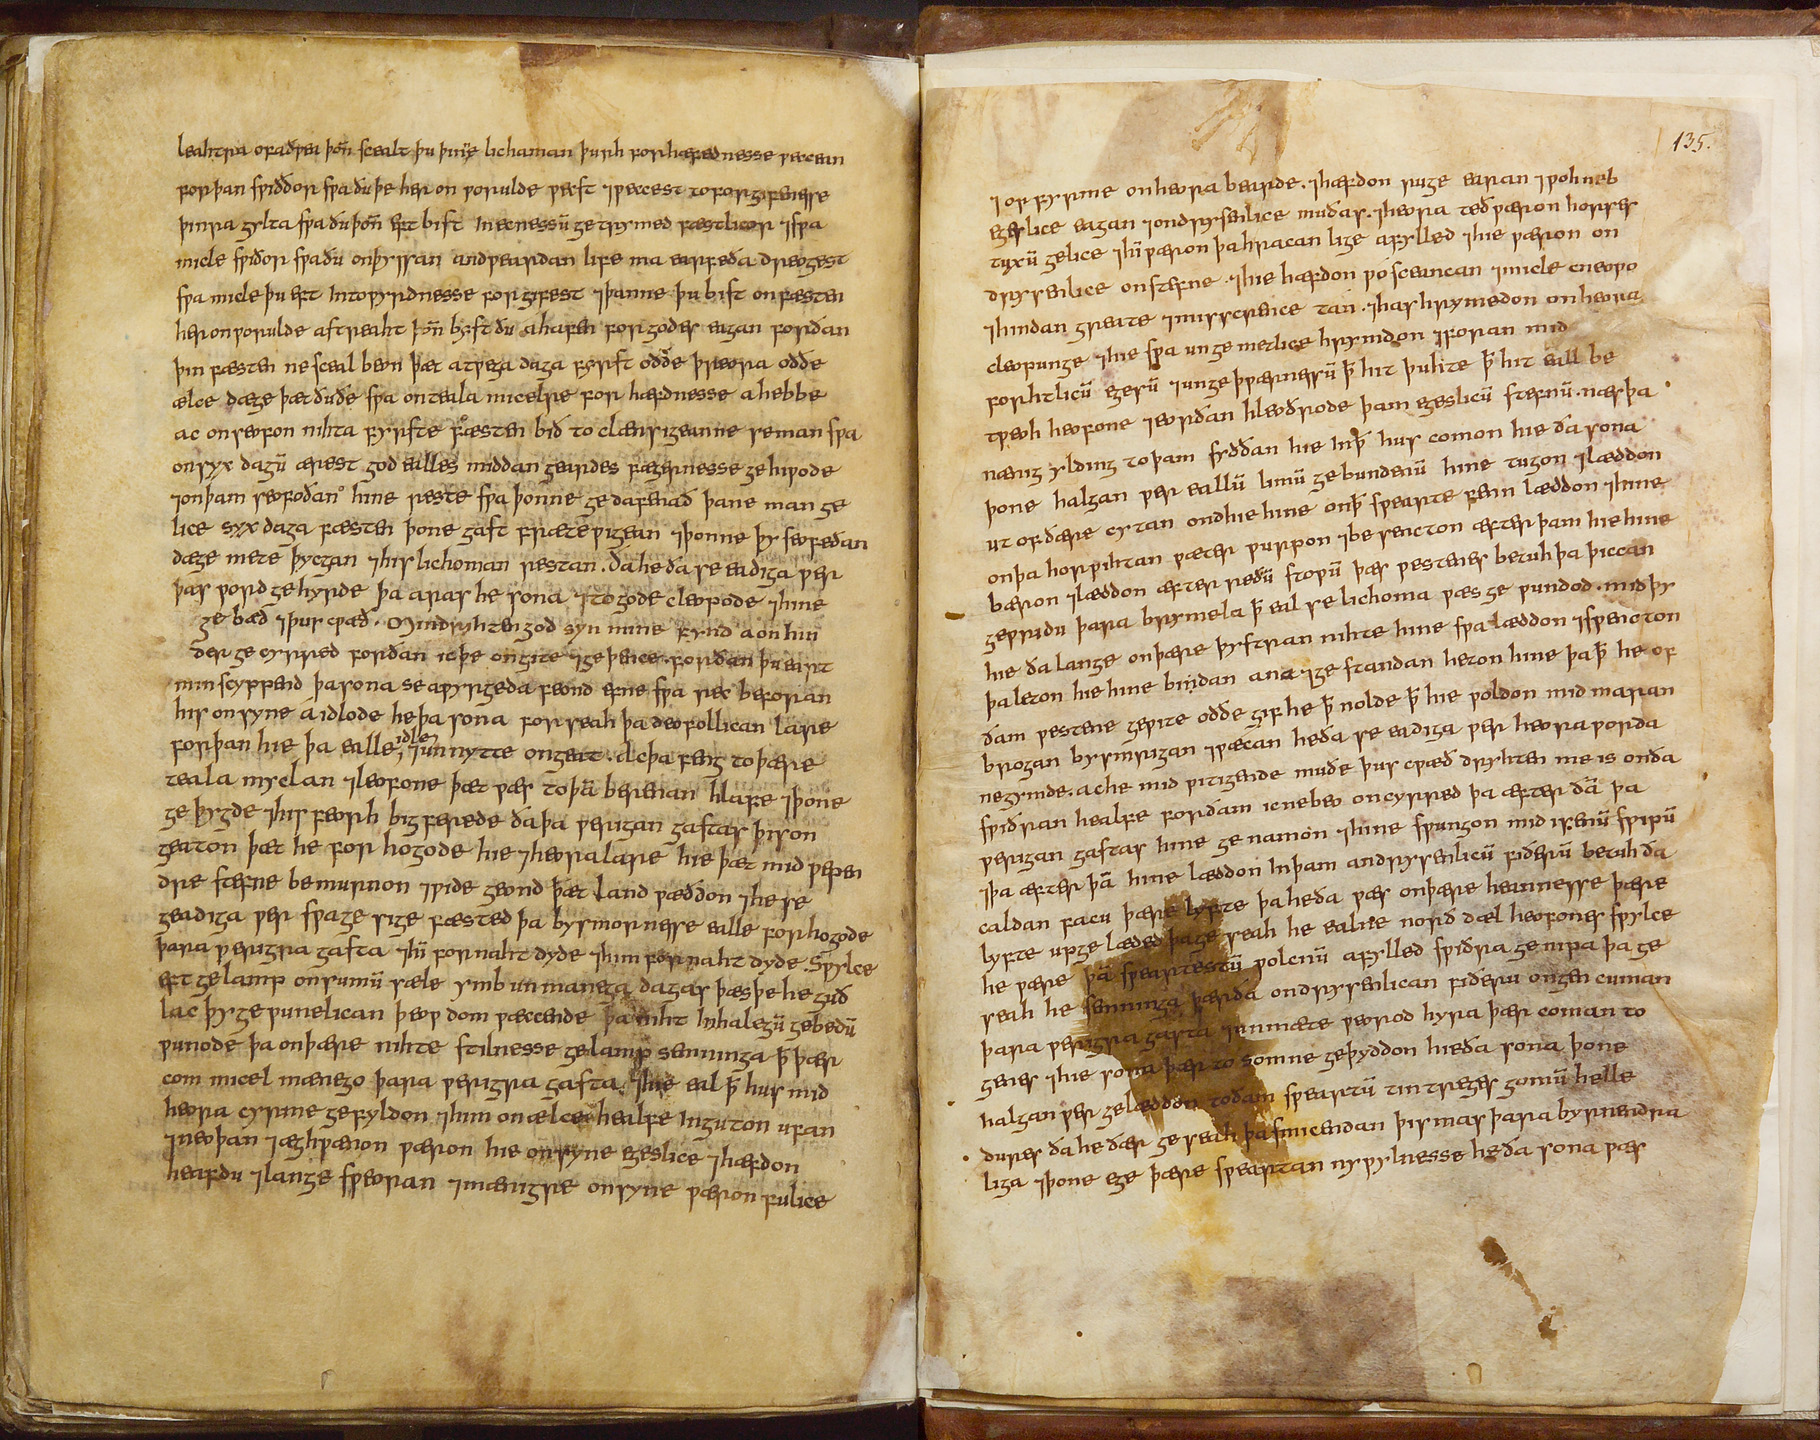 leahtra of aðwea þoñ scealt þu þinne lichaman þurh forhæfednesse weccan
forþan swiððor swa ðu þe her on worulde wæst ⁊ wæcest to forgifenesse
þinra gylta swa ðu þoñ eft bist in ecnessū getrymed fæstlicor ⁊ swa
micle swiðor swa ðu on þyssan andweardan life ma earfeða dreogest
swa micle þu eft in towyrdnesse forgifest ⁊ þanne þu bist on fæsten
her on worulde astreaht þoñ byst ðu ahafen for godes eagan forðan
þin fæsten ne sceal beon þæt a twega daga fyrst oððe þreora oððe
ælce dæge þæt ðu ðe swa on teala micelre forhæfdnesse ahebbe
ac on seofon nihta fyrste fæsten bið to clænsigeanne seman swa
on syx dagū ærest god ealles middangeardes fægernesse gehiwode
⁊ on þam seofoðan hine reste swa þonne gedafenað þane man ge
lice syx daga fæsten þone gast frætewigean ⁊ þonne þy seofeðan
dæge mete þycgan ⁊ his lichoman restan. ða he ða se eadiga wer
þas word gehyrde þa aras he sona ⁊ to gode cleopode ⁊ hine
gebæd ⁊ þus cwæð. Min dryhten god syn mine fynd a on hin
der gecyrred forðan ic þe ongite ⁊ geþence. forðan þu eart
min scyppend þa sona se awyrgeda feond efne swa rec beforan
his onsyne aidlode he þa sona forseah þa deofollican lare
forþan hie þa ealle idle ⁊ unnytte ongeat. ac þa feng to þære
teala myclan ⁊ leofone þæt wæs to þā berenan hlafe ⁊ þone
geþygde ⁊ his feorh bigferede ða þa werigan gastas þis on
geaton þæt he forhogode hie ⁊ heora lare hie þæt mid wepen
dre stefne bemurnon ⁊ wide geond þæt land wæððon ⁊ he se
geadiga wer swa gesigefæsted þa bysmornesse ealle forhogode
þara werigra gasta ⁊ hī for naht dyde ⁊ him for naht dyde. Swylce
eft gelamp on sumū sæle ymb unmanega dagas þæs þe he guð
lac þy gewunelican þeowdom wæccende þa niht in halegū gebedū
wunode þa on þære nihte stilnesse gelamp semninga þ̄ þær
com micel mænego þara werigra gasta. ⁊ hie eal þ̄ hus mid
heora cyrme gefyldon ⁊ him on ælce healfe inguton ufan
⁊ neoþan ⁊ æghwæron wæron hie on syne egeslice ⁊ hæfdon
heardu ⁊ lange sweoran ⁊ mænigre onsyne wæron fulice
135.
⁊ of fyrme on heora bearde. ⁊ hæfdon ruge earan ⁊ woh neb
egeslice eagan ⁊ ondrysenlice muðas. ⁊ heora teð wæron horses
tuxū gelice ⁊ hī wæron þa hracan lige afylled ⁊ hie wæron on
drysenlice on stefne. ⁊ hie hæfdon wo sceancan ⁊ micle cneowo
⁊ hindan greate ⁊ misscrence tán. ⁊ has hrymedon on heora
cleopunge ⁊ hie swa ungemetlice hrymdon ⁊ foran mid
forhtlicū egesū ⁊ ungeþwærnessū þ̄ hit þuhte þ̄ hit eall be
tweoh heofone ⁊ eorðan hleoðrode þam egeslicū stefnū. næs þa
nænig ylding to þam syððan hie in þ̄ hus comon hie ða sona
þone halgan wer eallū limū gebundenū hine tugon ⁊ læddon
ut of ðære cytan ond hie hine on þ̄ swearte fenn læddon ⁊ hine
on þa horwihtan wæter wurpon ⁊ besencton æfter þam hie hine
bæron ⁊ læddon æfter reðū stopū þæs westenes betuh þa þiccan
gewridu þara brymela þ̄ eal se lichoma wæs gewundod. mid þy
hie ða lange on þære þystran nihte hine swa læddon ⁊ swencton
þa leton hie hine bindan ana ⁊ gestandan heton hine þa þ̄ he of
ðam westene gewite oððe gif he þ̄ nolde þ̄ hie woldon mid maran
brogan bysmrigan ⁊ wæcan he ða se eadiga wer heora worda
ne gymde. ac he mid witigende muðe þus cwæð dryhten me is on ða
swiðran healfe forðam ic ne beo oncyrred þa æfter ðā þa
werigan gastas hine genamon ⁊ hine swungon mid irenū swipū
⁊ þa æfter þā hine læddon in þam andrysenlicū fiðerū betuh ða
caldan facu þære lyfte þa he ða wæs on þære heannesse þære
lyfte upgelæded þa geseah he ealne norð dæl heofones swylce
he wære þā sweartestū wolcnū afylled swiðra genipa þa ge
seah he semninga þær ða ondrysenlican fiðeru ongen cuman
þara werigra gasta ⁊ unmæte weorod hyra þær coman to
genes ⁊ hie sona þær to somne geþyddon hie ða sona þone
halgan wer gelæddon to ðam sweartū tintreges gomū helle
dures ða he ðær geseah þa smicendan þismas þara byrnendra
liga ⁊ þone ege þære sweartan nywylnesse he ða sona wæs